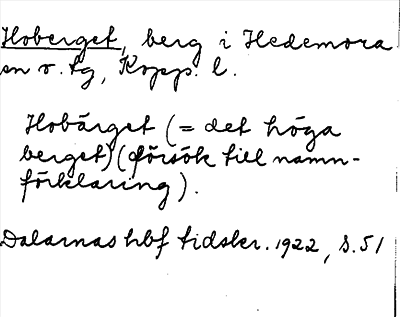 Hoberget, berg i Hedemora
sn o. tg, Kopp. l.
Hobärget (= det höga
berget) (försök till namn-
förklaring).
Dalarnas hbf tidskr. 1922, s. 51